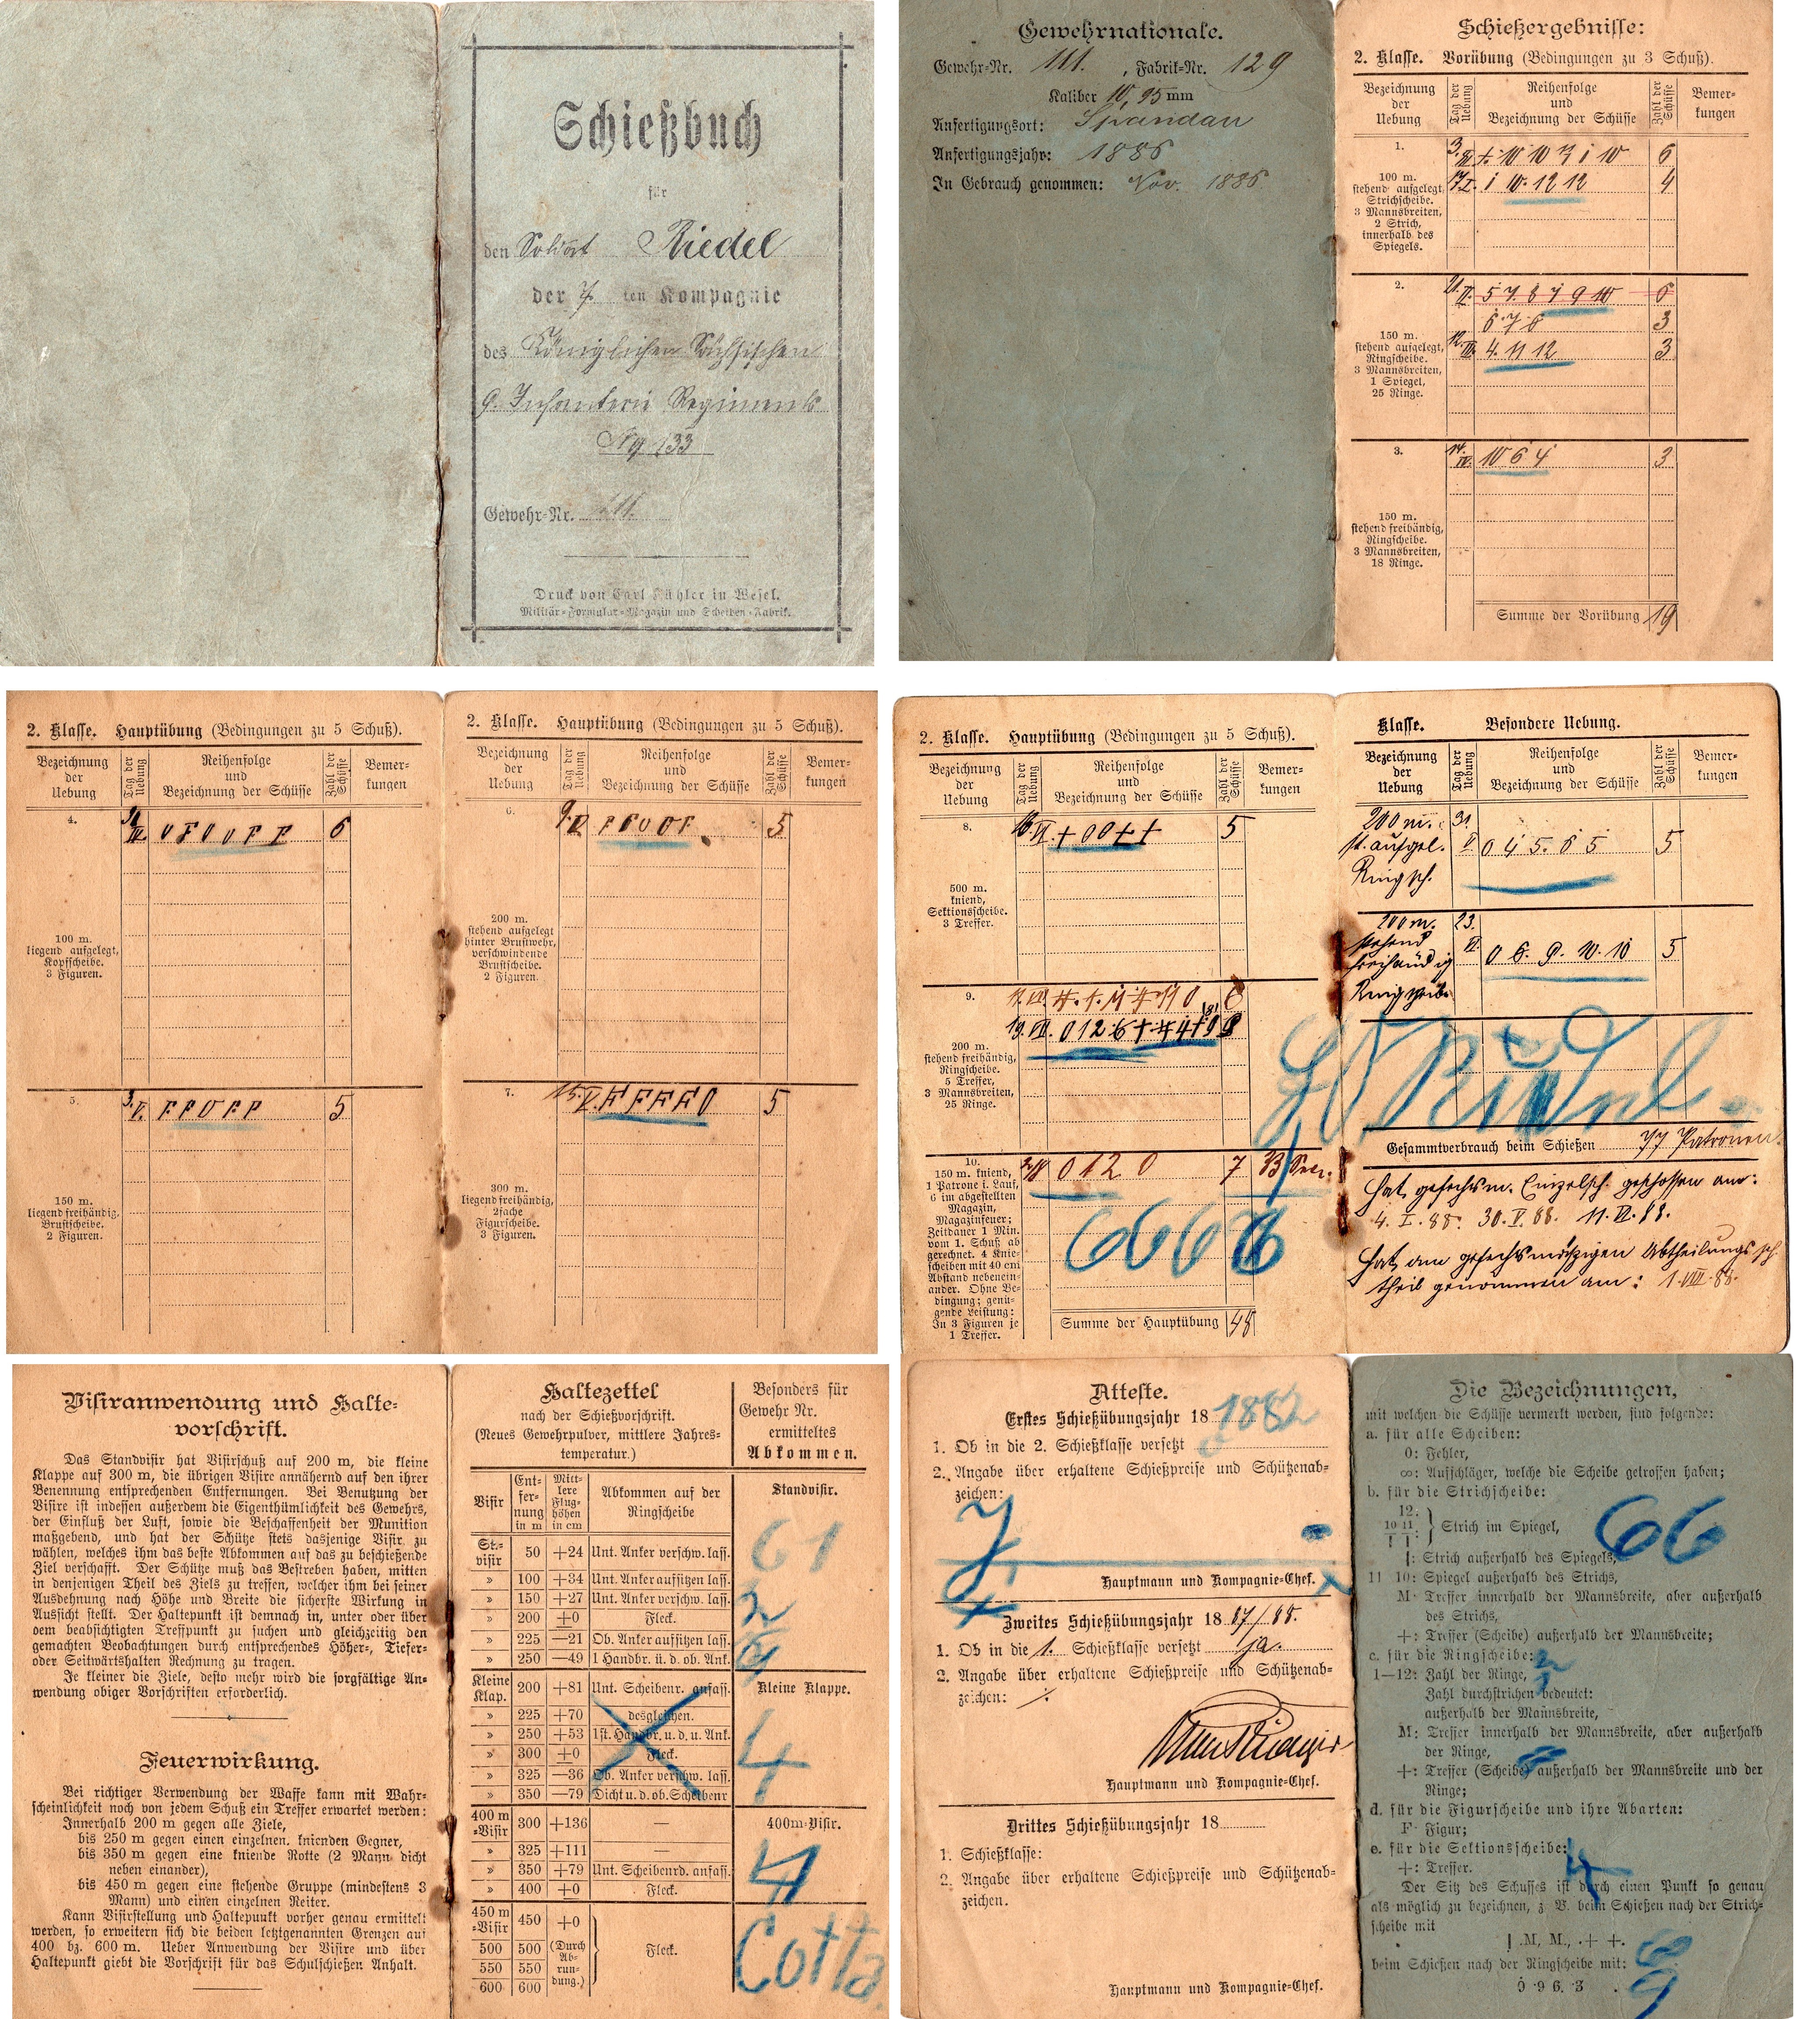 Schießbuch
für
den Soldat Riedel
der 7. ten Kompagnie
des Königlichen Sächsischen
9. Infanterie Regiments
No 133
Gewehr-Nr. 111.
Druck von Carl Kühler in Wesel.
Militär-Formular-Magazin und Scheiben-Fabrik.
Gewehrnationale.
Gewehr-Nr. 111. , Fabrik-Nr. 129
Kaliber 10,95 mm
Anfertigungsort: Spandau
Anfertigungsjahr: 1886
In Gebrauch genommen: Nov. 1886
Schießergebnisse:
2. Klasse. Vorübung (Bedingungen zu 3 Schuß).
Bezeichnung der Uebung
Tag der Uebung
Reihenfolge und Bezeichnung der Schüsse
Zahl der Schüsse
Bemerkungen
1.
100 m.
stehend aufgelegt,
Strichscheibe.
3 Mannsbreiten,
2 Strich,
innerhalb des
Spiegels.
6
1 10. 12 12 4
2.
150 m.
stehend aufgelegt,
Ringscheibe.
3 Mannsbreiten,
1 Spiegel,
25 Ringe.
6 7 6 3
12. III. 4. 11 12 3
3.
14. IV. 10 6 4 3
150 m.
stehend freihändig,
Ringscheibe.
3 Mannsbreiten,
18 Ringe.
Summe der Vorübung 19
2. Klasse. Hauptübung (Bedingungen zu 5 Schuß).
Bezeichnung der Uebung
Tag der Uebung
Reihenfolge und Bezeichnung der Schüsse
Zahl der Schüsse
Bemerkungen
4.
0 F 0 0 F F 6
100 m.
liegend aufgelegt,
Kopfscheibe.
3 Figuren.
5.
3. V. F F 0 F F 5
150 m.
liegend freihändig,
Brustscheibe.
2 Figuren.
2. Klasse. Hauptübung (Bedingungen zu 5 Schuß).
Bezeichnung der Uebung
Tag der Uebung
Reihenfolge und Bezeichnung der Schüsse
Zahl der Schüsse
Bemerkungen
6.
F F 0 0 F 5
200 m.
stehend aufgelegt
hinter Brustwehr,
verschwindende
Brustscheibe.
2 Figuren.
7.
15. V. F F F F 0 5
300 m.
liegend freihändig,
2fache
Figurscheibe.
3 Figuren.
2. Klasse. Hauptübung (Bedingungen zu 5 Schuß).
Bezeichnung der Uebung
Tag der Uebung
Reihenfolge und Bezeichnung der Schüsse
Zahl der Schüsse
Bemerkungen
8.
+ 0 0 + + 5
500 m.
kniend,
Sektionsscheibe.
3 Treffer.
9.
200 m.
stehend freihändig,
Ringscheibe.
5 Treffer,
3 Mannsbreiten,
25 Ringe.
10.
0 1 2 0 7
150 m. kniend,
1 Patrone i. Lauf,
6 im abgestellten
Magazin,
Magazinfeuer;
Zeitdauer 1 Min.
vom 1. Schuß ab
gerechnet. 4 Knie-
scheiben mit 40 cm
Abstand nebenein-
ander. Ohne Be-
dingung; genü-
gende Leistung:
In 3 Figuren je
1 Treffer.
66 66
Summe der Hauptübung 48
Klasse. Besondere Uebung.
Bezeichnung der Uebung
Tag der Uebung
Reihenfolge und Bezeichnung der Schüsse
Zahl der Schüsse
Bemerkungen
200 m. 31.
st. aufgel. V. 0 4 5. 6 5 5
Ringsch.
200 m. 23.
stehend VI.
freihändig 0 6. 9. 10. 10 5
Ringscheibe
Gesammtverbrauch beim Schießen 77 Patronen.
Hat gefechtsm. Einzelsch. geschossen am:
4. I. 88. 30. V. 88. 11. VI. 88.
Hat am gefechtsmäßigen Abtheilungssch.
theil genommen am: 1. VIII. 88.
Visiranwendung und Halte-
vorschrift.
Das Standvisir hat Visirschuß auf 200 m, die kleine
Klappe auf 300 m, die übrigen Visire annähernd auf den ihrer
Benennung entsprechenden Entfernungen. Bei Benutzung der
Visire ist indessen außerdem die Eigenthümlichkeit des Gewehrs,
der Einfluß der Luft, sowie die Beschaffenheit der Munition
maßgebend, und hat der Schütze stets dasjenige Visir zu
wählen, welches ihm das beste Abkommen auf das zu beschießende
Ziel verschafft. Der Schütze muß das Bestreben haben, mitten
in denjenigen Theil des Ziels zu treffen, welcher ihm bei seiner
Ausdehnung nach Höhe und Breite die sicherste Wirkung in
Aussicht stellt. Der Haltepunkt ist demnach in, unter oder über
dem beabsichtigten Treffpunkt zu suchen und gleichzeitig den
gemachten Beobachtungen durch entsprechendes Höher-, Tiefer-
oder Seitwärtshalten Rechnung zu tragen.
Je kleiner die Ziele, desto mehr wird die sorgfältige An-
wendung obiger Vorschriften erforderlich.
Feuerwirkung.
Bei richtiger Verwendung der Waffe kann mit Wahr-
scheinlichkeit noch von jedem Schuß ein Treffer erwartet werden:
Innerhalb 200 m gegen alle Ziele,
bis 250 m gegen einen einzelnen, knienden Gegner,
bis 350 m gegen eine kniende Rotte (2 Mann dicht
neben einander),
bis 450 m gegen eine stehende Gruppe (mindestens 3
Mann) und einen einzelnen Reiter.
Kann Visirstellung und Haltepunkt vorher genau ermittelt
werden, so erweitern sich die beiden letztgenannten Grenzen auf
400 bz. 600 m. Ueber Anwendung der Visire und über
Haltepunkt giebt die Vorschrift für das Schulschießen Anhalt.
Haltezettel
nach der Schießvorschrift.
(Neues Gewehrpulver, mittlere Jahres-
temperatur.)
Besonders für
Gewehr Nr.
ermitteltes
Abkommen.
Visir
Entfernung in m
Mittlere Flughöhen in cm
Abkommen auf der Ringscheibe
Standvisir.
St.-visir 50 +24 Unt. Anker verschw. lass.
» 100 +34 Unt. Anker aufsitzen lass.
» 150 +27 Unt. Anker verschw. lass.
» 200 +0 Fleck.
» 225 —21 Ob. Anker aufsitzen lass.
» 250 —49 1 Handbr. ü. d. ob. Ank.
61
2
Kleine Klap. 200 +81 Unt. Scheibenr. anfass. Kleine Klappe.
» 225 +70 desgleichen.
» 250 +53 1 st. Handbr. u. d. u. Ank.
» 300 +0 Fleck.
» 325 —36 Ob. Anker verschw. lass.
» 350 —79 Dicht u. d. ob. Scheibenr
4
400 m-Visir 300 +136 — 400m-Visir.
» 325 +111 —
» 350 +79 Unt. Scheibenrd. anfass.
» 400 +0 Fleck.
450 m-Visir 450 +0
500 500 (Durch Abrundung.) Fleck.
550 550
600 600
Cotta
Atteste.
Erstes Schießübungsjahr 18 1882
1. Ob in die 2. Schießklasse versetzt
2. Angabe über erhaltene Schießpreise und Schützenab-
zeichen:
Hauptmann und Kompagnie-Chef.
Zweites Schießübungsjahr 18 87/88.
1. Ob in die 1. Schießklasse versetzt ja.
2. Angabe über erhaltene Schießpreise und Schützenab-
zeichen: ./.
Hauptmann und Kompagnie-Chef.
Drittes Schießübungsjahr 18
1. Schießklasse:
2. Angabe über erhaltene Schießpreise und Schützenab-
zeichen.
Hauptmann und Kompagnie-Chef.
Die Bezeichnungen,
mit welchen die Schüsse vermerkt werden, sind folgende:
a. für alle Scheiben:
0: Fehler,
∞: Aufschläger, welche die Scheibe getroffen haben;
b. für die Strichscheibe:
12:
10 11 } Strich im Spiegel,
I I
I: Strich außerhalb des Spiegels,
11 10: Spiegel außerhalb des Strichs,
M· Treffer innerhalb der Mannsbreite, aber außerhalb
des Strichs,
+: Treffer (Scheibe) außerhalb der Mannsbreite;
c. für die Ringscheibe:
1—12: Zahl der Ringe,
Zahl durchstrichen bedeutet:
außerhalb der Mannsbreite,
M: Treffer innerhalb der Mannsbreite, aber außerhalb
der Ringe,
+: Treffer (Scheibe) außerhalb der Mannsbreite und der
Ringe;
d. für die Figurscheibe und ihre Abarten:
F· Figur;
e. für die Sektionsscheibe:
+: Treffer.
Der Sitz des Schusses ist durch einen Punkt so genau
als möglich zu bezeichnen, z. B. beim Schießen nach der Strich-
scheibe mit
| .M, M., .+ +.
beim Schießen nach der Ringscheibe mit:
9 ·9 6. 3
66